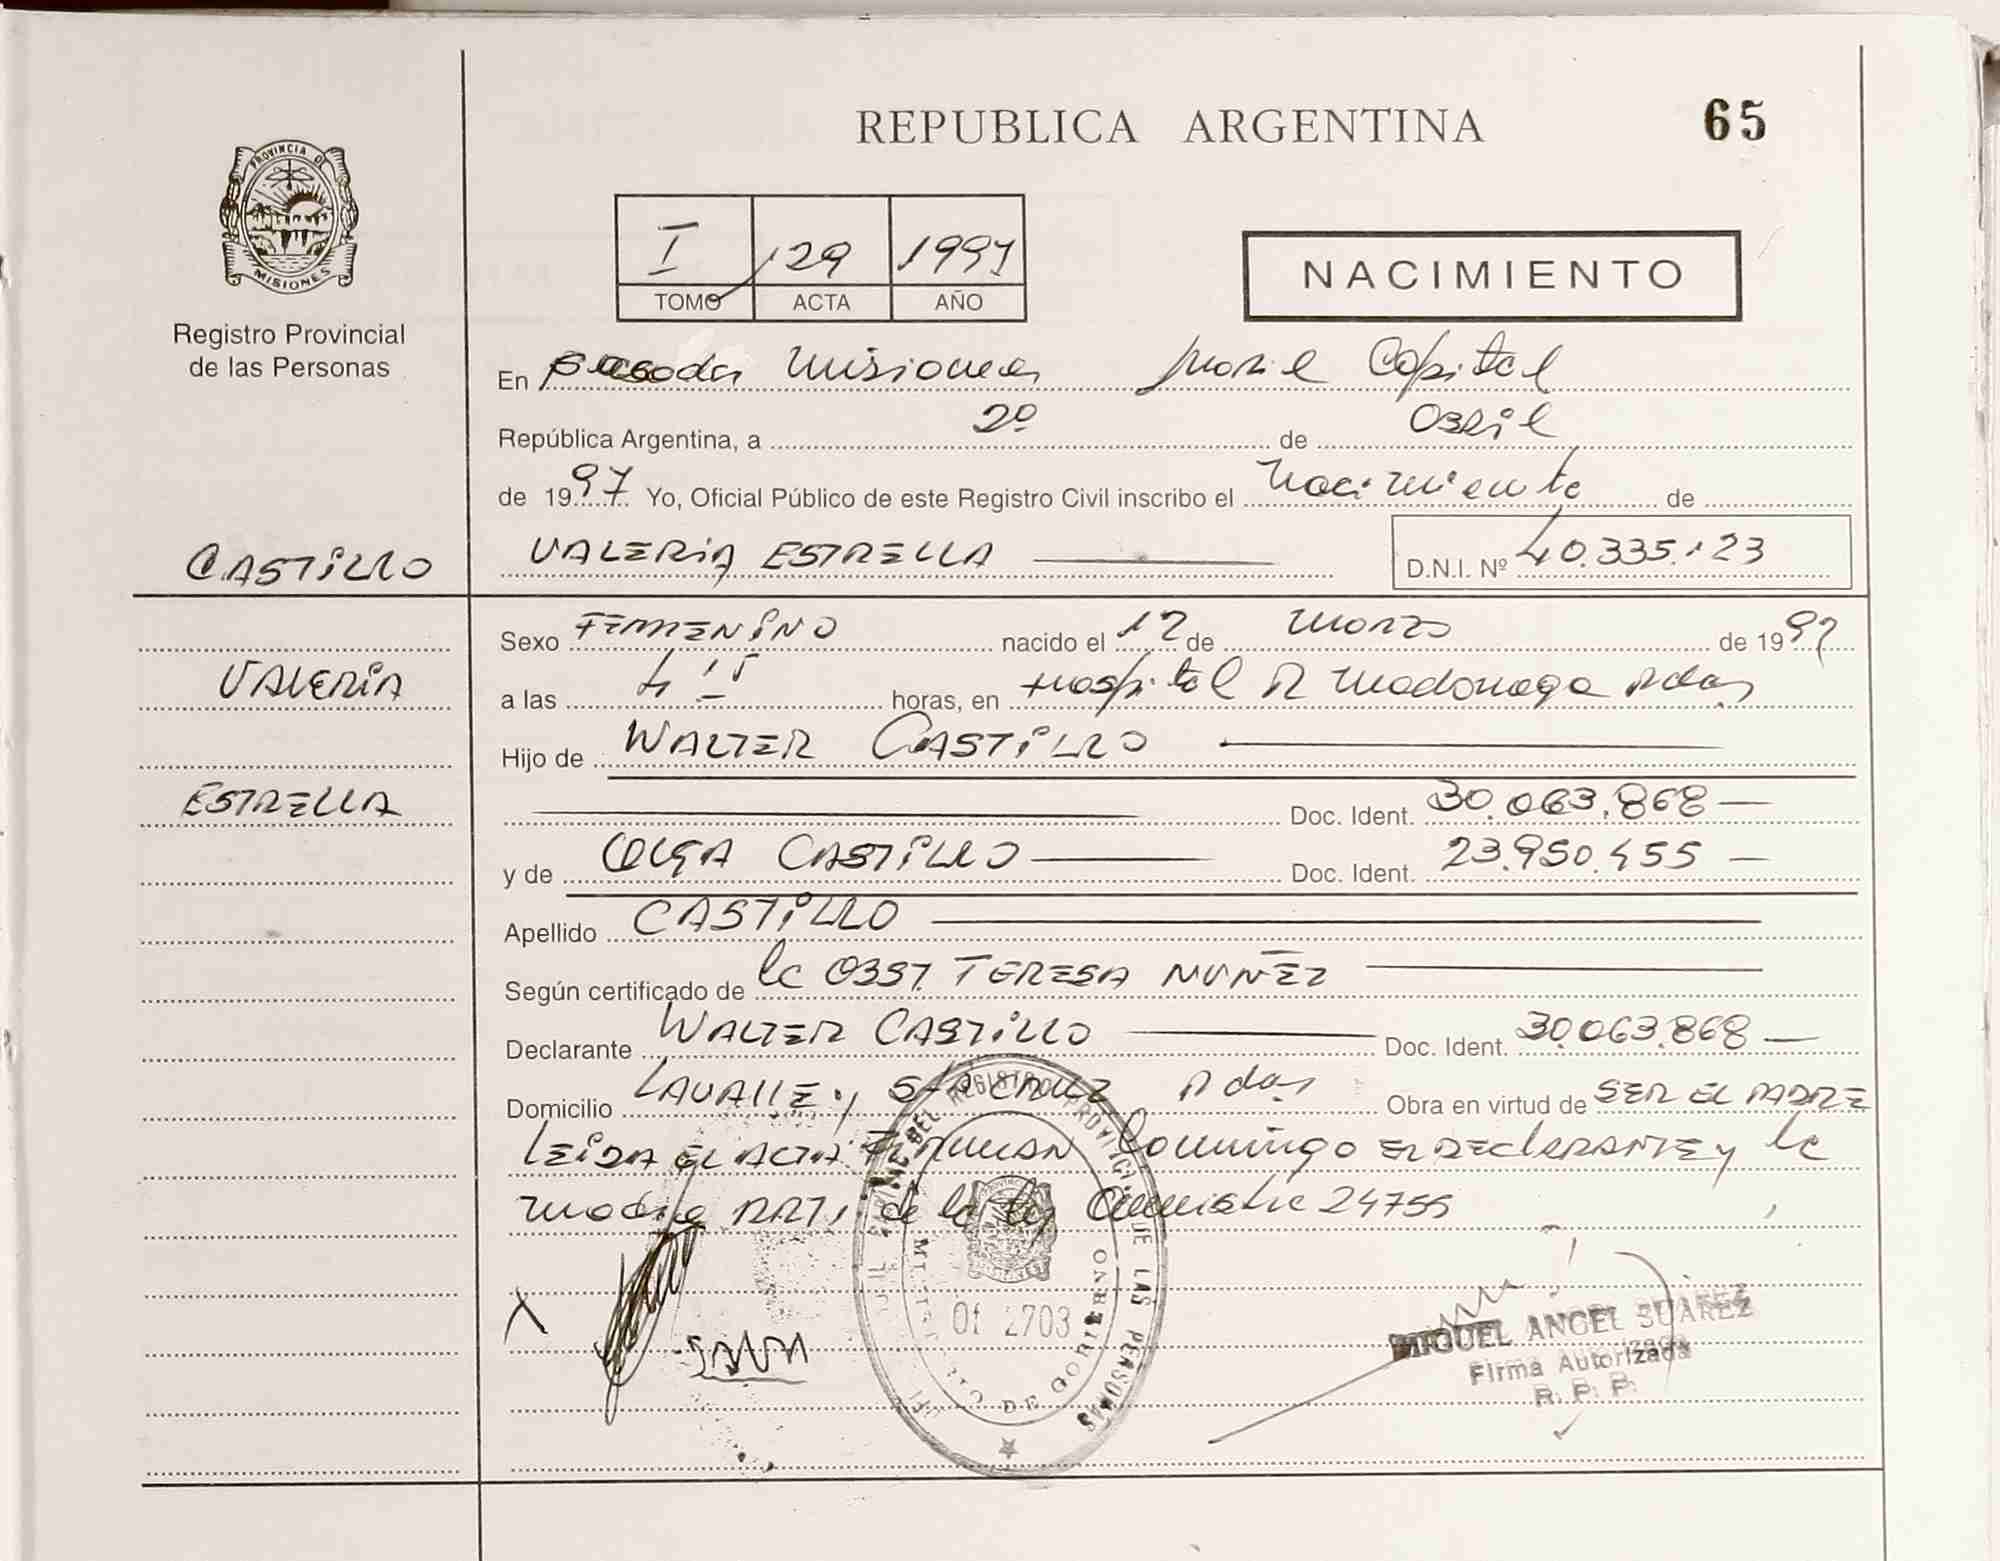 REPUBLICA ARGENTINA
65
PROVINCIA DE
MISIONES
Registro Provincial
de las Personas
I 129 1997
TOMO ACTA AÑO
NACIMIENTO
En Posadas Misiones Capital
República Argentina, a 2º de Abril
de 1997 Yo, Oficial Público de este Registro Civil inscribo el Nacimiento de
CASTILLO VALERIA ESTRELLA D.N.I. Nº 40.335.123
Sexo FEMENINO nacido el 12 de Marzo de 1997
VALERIA
a las horas, en Hospital R Madariaga Pdas
Hijo de WALTER CASTILLO
ESTRELLA
Doc. Ident. 30.063.868
y de OLGA CASTILLO Doc. Ident. 23.950.455
Apellido CASTILLO
Según certificado de la OBST. TERESA NUÑEZ
Declarante WALTER CASTILLO Doc. Ident. 30.063.868
Domicilio LAVALLE y STA CRUZ Pdas Obra en virtud de SER EL PADRE
LEIDA EL ACTA FIRMAN Conmigo EL DECLARANTE y la
Madre ART. de la ley 24755
REGISTRO PROVINCIAL DE LAS PERSONAS
MINISTERIO DE GOBIERNO
Of 2703
X
MIGUEL ANGEL SUAREZ
Firma Autorizada
R. P. P.